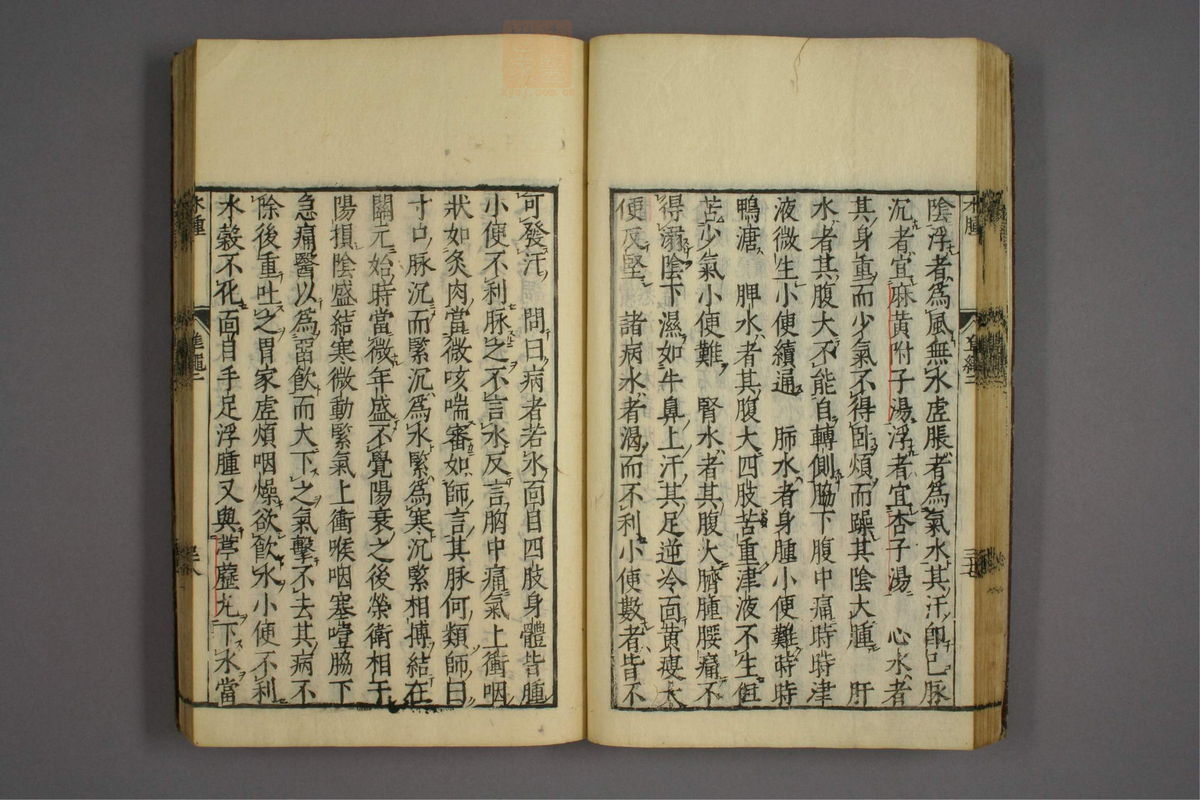 陰浮者爲風無水虛脹者爲氣水其汗即已脉
沉者宜麻黃附子湯浮者宜杏子湯　心水者
其身重而少氣不得臥煩而躁其陰大腫　肝
水者其腹大不能自轉側脇下腹中痛時時津
液微生小便續通　肺水者身腫小便難時時
鴨溏　脾水者其腹大四肢苦重津液不生但
苦少氣小便難　腎水者其腹大臍腫腰痛不
得溺陰下濕如牛鼻上汗其足逆冷面黃瘦大
便反堅　諸病水者渴而不利小便數者皆不
水腫
可發汗　問曰病者若水面目四肢身體皆腫
小便不利脉之不言水反言胸中痛氣上衝咽
狀如炙肉當微咳喘審如師言其脉何類師曰
寸口脉沉而緊沉爲水緊爲寒沉緊相搏結在
關元始時當微年盛不覺陽衰之後榮衛相干
陽損陰盛結寒微動緊氣上衝喉咽塞噎脇下
急痛醫以爲留飲而大下之氣擊不去其病不
除後重吐之胃家虛煩咽燥欲飲水小便不利
水穀不化面目手足浮腫又與葶藶丸下水當
水腫